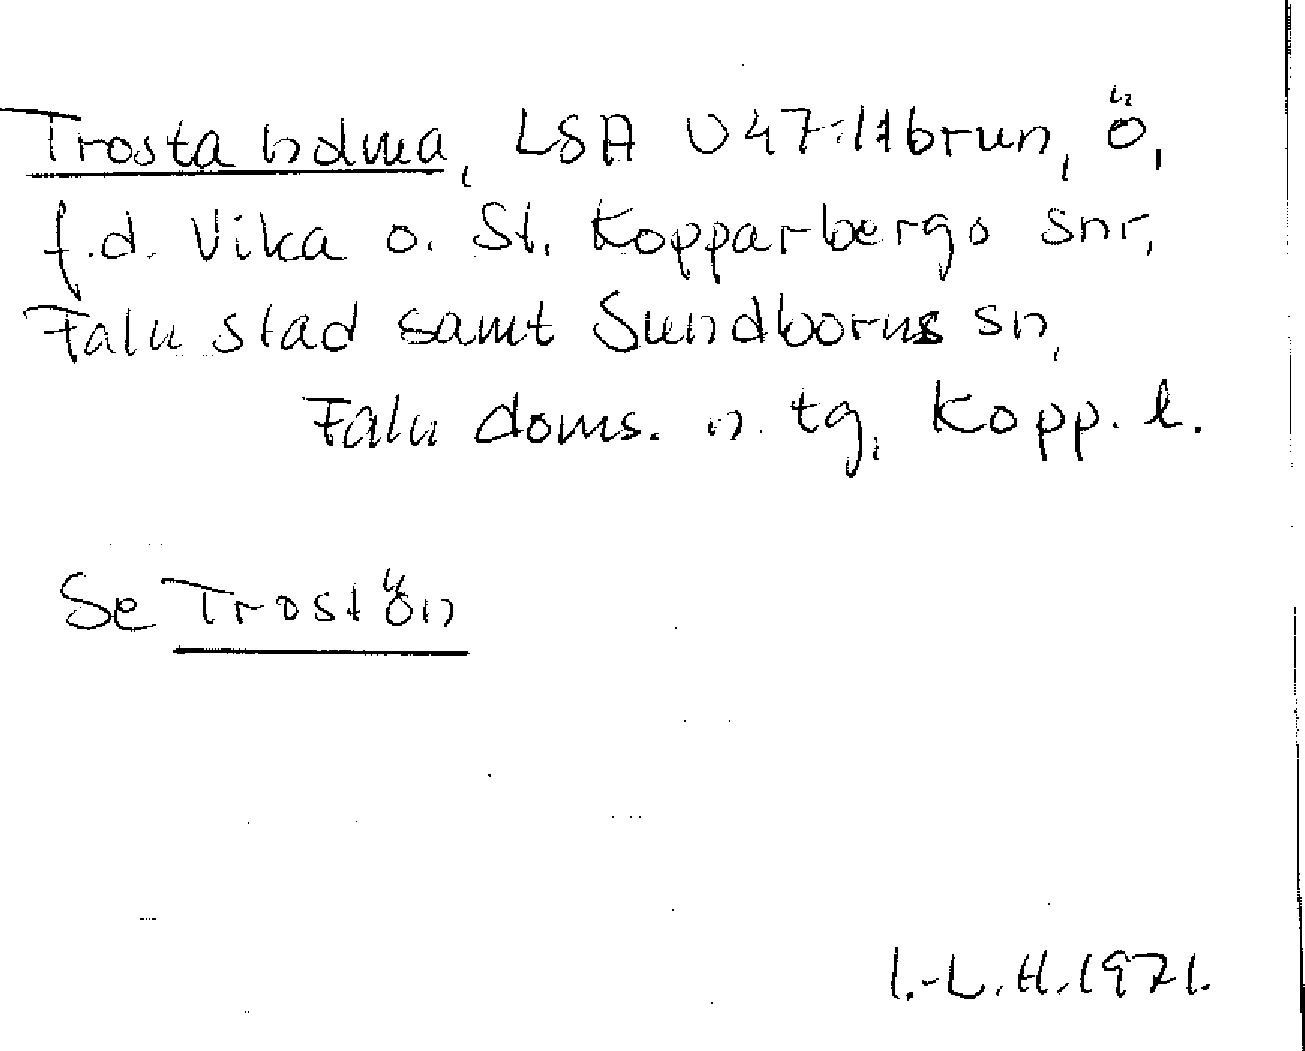 Trosta holma, LSA U47:11 brun, ö,
f.d. Vika o. St. Kopparbergs snr,
Falu stad samt Sundborns sn,
Falu doms. n. tg, Kopp. l.
Se Trostön
I.-L.H. 1971.